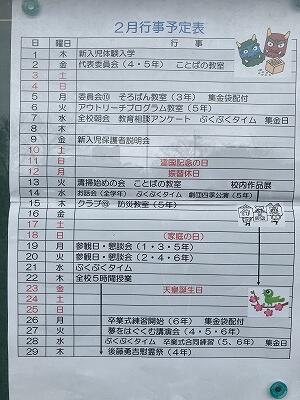 2月行事予定表
日 曜日 行事
1 木 新入児体験入学
2 金 代表委員会(4・5年) ことばの教室
3 土
4 日
5 月 委員会⑪ そろばん教室(3年) 集金袋配付
6 火 アウトリーチプログラム教室(5年)
7 水 全校朝会 教育相談アンケート ぷくぷくタイム 集金日
8 木
9 金 新入児保護者説明会
10 土
11 日 建国記念の日
12 月 振替休日
13 火 清掃始めの会 ことばの教室 校内作品展
14 水 お話会(全学年) ぷくぷくタイム 劇団四季公演(5年)
15 木 クラブ⑩ 防災教室(5年)
16 金
17 土
18 日 (家庭の日)
19 月 参観日・懇談会(1・3・5年)
20 火 参観日・懇談会(2・4・6年)
21 水 ぷくぷくタイム
22 木 全校5時間授業
23 金 天皇誕生日
24 土
25 日
26 月 卒業式練習開始(6年) 集金袋配付
27 火 夢をはぐくむ講演会(4・5・6年)
28 水 ぷくぷくタイム 卒業式合同練習(5、6年) 集金日
29 木 後藤勇吉慰霊祭(4年)